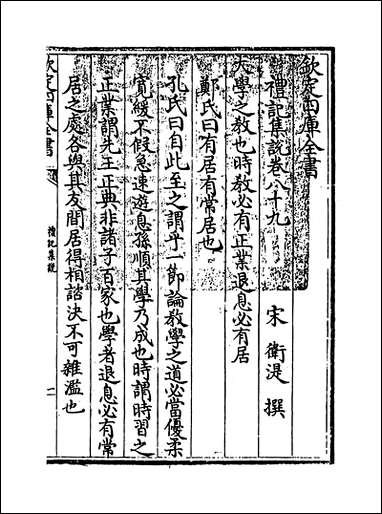 欽定四庫全書
禮記集說卷八十九
宋 衛湜 撰
大學之教也時教必有正業退息必有居
鄭氏曰有居有常居也
孔氏曰自此至之謂乎一節論教學之道必當優柔
寛緩不假急速遊息孫順其學乃成也時謂時習之
正業謂先王正典非諸子百家也學者退息必有常
居之處各與其友閒居得相諮決不可雜濫也
欽定四庫全書
禮記集說
一